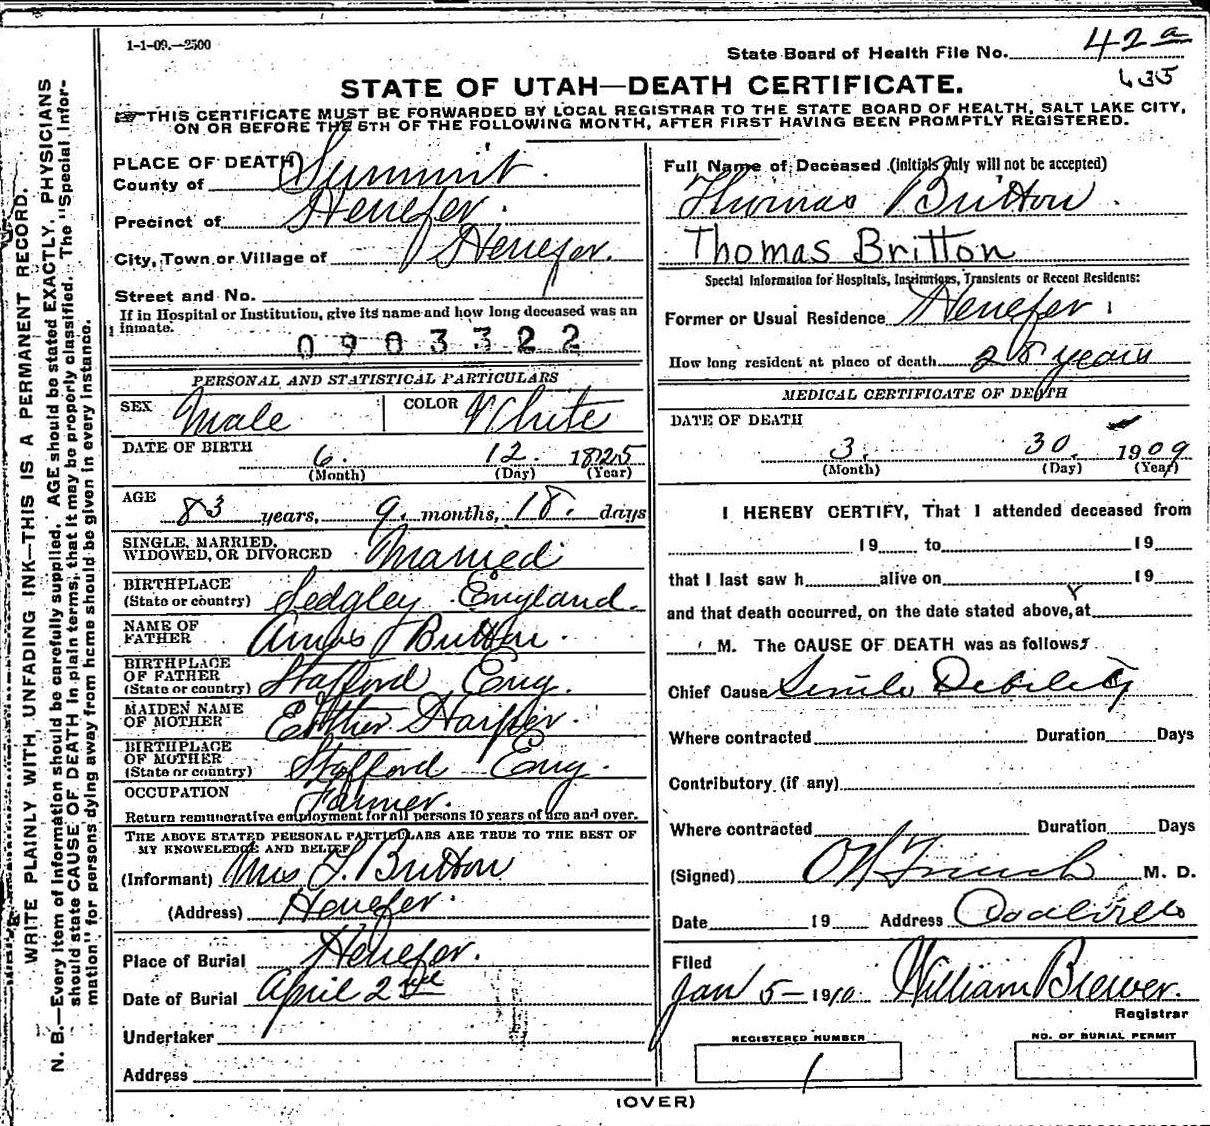 1-1-09.—2500
State Board of Health File No. 42a
435
STATE OF UTAH—DEATH CERTIFICATE.
THIS CERTIFICATE MUST BE FORWARDED BY LOCAL REGISTRAR TO THE STATE BOARD OF HEALTH, SALT LAKE CITY,
ON OR BEFORE THE 5TH OF THE FOLLOWING MONTH, AFTER FIRST HAVING BEEN PROMPTLY REGISTERED.
WRITE PLAINLY WITH UNFADING INK—THIS IS A PERMANENT RECORD.
N. B.—Every item of information should be carefully supplied. AGE should be stated EXACTLY. PHYSICIANS
should state CAUSE OF DEATH in plain terms, that it may be properly classified. The "Special Infor-
mation" for persons dying away from home should be given in every instance.
PLACE OF DEATH
County of Summit.
Precinct of Henefer.
City, Town or Village of Henefer.
Street and No.
If in Hospital or Institution, give its name and how long deceased was an
inmate.
0903322
PERSONAL AND STATISTICAL PARTICULARS
SEX Male COLOR White
DATE OF BIRTH 6. 12. 1825
(Month) (Day) (Year)
AGE 83 years, 9. months, 18. days
SINGLE, MARRIED,
WIDOWED, OR DIVORCED Married
BIRTHPLACE
(State or country) Sedgley England.
NAME OF
FATHER Amos Britton.
BIRTHPLACE
OF FATHER
(State or country) Stafford Eng.
MAIDEN NAME
OF MOTHER Esther Harper.
BIRTHPLACE
OF MOTHER
(State or country) Stafford Eng.
OCCUPATION Farmer.
Return remunerative employment for all persons 10 years of age and over.
THE ABOVE STATED PERSONAL PARTICULARS ARE TRUE TO THE BEST OF
MY KNOWELEDGE AND BELIEF
(Informant) Mrs T. Britton
(Address) Henefer.
Place of Burial Henefer.
Date of Burial April 2nd
Undertaker
Address
Full Name of Deceased (initials only will not be accepted)
Thomas Britton.
Thomas Britton
Special Information for Hospitals, Institutions, Transients or Recent Residents:
Former or Usual Residence Henefer
How long resident at place of death 28 years
MEDICAL CERTIFICATE OF DEATH
DATE OF DEATH
3. 30. 1909
(Month) (Day) (Year)
I HEREBY CERTIFY, That I attended deceased from
19 to 19
that I last saw h alive on 19
and that death occurred, on the date stated above, at
M. The CAUSE OF DEATH was as follows:
Chief Cause Senile Debility
Where contracted Duration Days
Contributory (if any)
Where contracted Duration Days
(Signed) M. D.
Date 19 Address Coalville
Filed
Jan 5- 1910 William Brewer.
Registrar
REGISTERED NUMBER
1
NO. OF BURIAL PERMIT
(OVER)